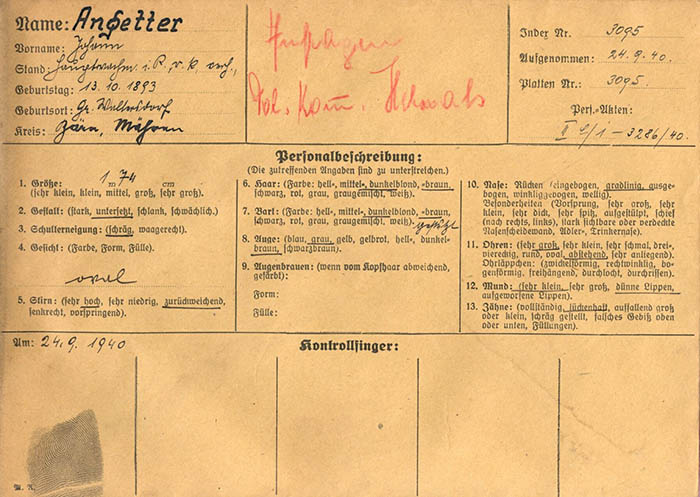 Name: Angetter
Vorname: Johann
Stand: Hauptwachm. i. R., r. k. verh.,
Geburtstag: 13. 10. 1893
Geburtsort: Gr. Waltersdorf
Kreis: Bärn, Mähren
Anfragen
Pol. Kom.
Index Nr. 3095
Aufgenommen: 24. 9. 40.
Platten Nr.: 3095.
Pers.-Akten:
II 3286/40.
Personalbeschreibung:
(Die zutreffenden Angaben sind zu unterstreichen.)
1. Größe: 1 m 74 cm
(sehr klein, klein, mittel, groß, sehr groß).
2. Gestalt: (stark, untersetzt, schlank, schwächlich).
3. Schulterneigung: (schräg, waagerecht).
4. Gesicht: (Farbe, Form, Fülle).
oval
5. Stirn: (sehr hoch, sehr niedrig, zurückweichend,
senkrecht, vorspringend).
6. Haar: (Farbe: hell-, mittel-, dunkelblond, -braun,
schwarz, rot, grau, graugemischt, weiß).
7. Bart: (Farbe: hell-, mittel-, dunkelblond, -braun,
schwarz, rot, grau, graugemischt, weiß).
8. Auge: (blau, grau, gelb, gelbrot, hell-, dunkel-
braun, schwarzbraun).
9. Augenbrauen: (wenn vom Kopfhaar abweichend,
gefärbt):
Form:
Fülle:
10. Nase: Rücken (eingebogen, gradlinig, ausge-
bogen, winkliggebogen, wellig).
Besonderheiten (Vorsprung, sehr groß, sehr
klein, sehr dick, sehr spitz, aufgestülpt, schief
(nach rechts, links), stark sichtbare oder verdeckte
Nasenscheidewand, Adler-, Trinkernase).
11. Ohren: (sehr groß, sehr klein, sehr schmal, drei-
viereckig, rund, oval, abstehend, sehr anliegend).
Ohrläppchen: (zwickelförmig, rechtwinklig, bo-
genförmig, freihängend, durchlocht, durchrissen).
12. Mund: (sehr klein, sehr groß, dünne Lippen,
aufgeworfene Lippen).
13. Zähne: (vollständig, lückenhaft, auffallend groß
oder klein, schräg gestellt, falsches Gebiß oben
oder unten, Füllungen).
Am: 24. 9. 1940
Kontrollfinger: